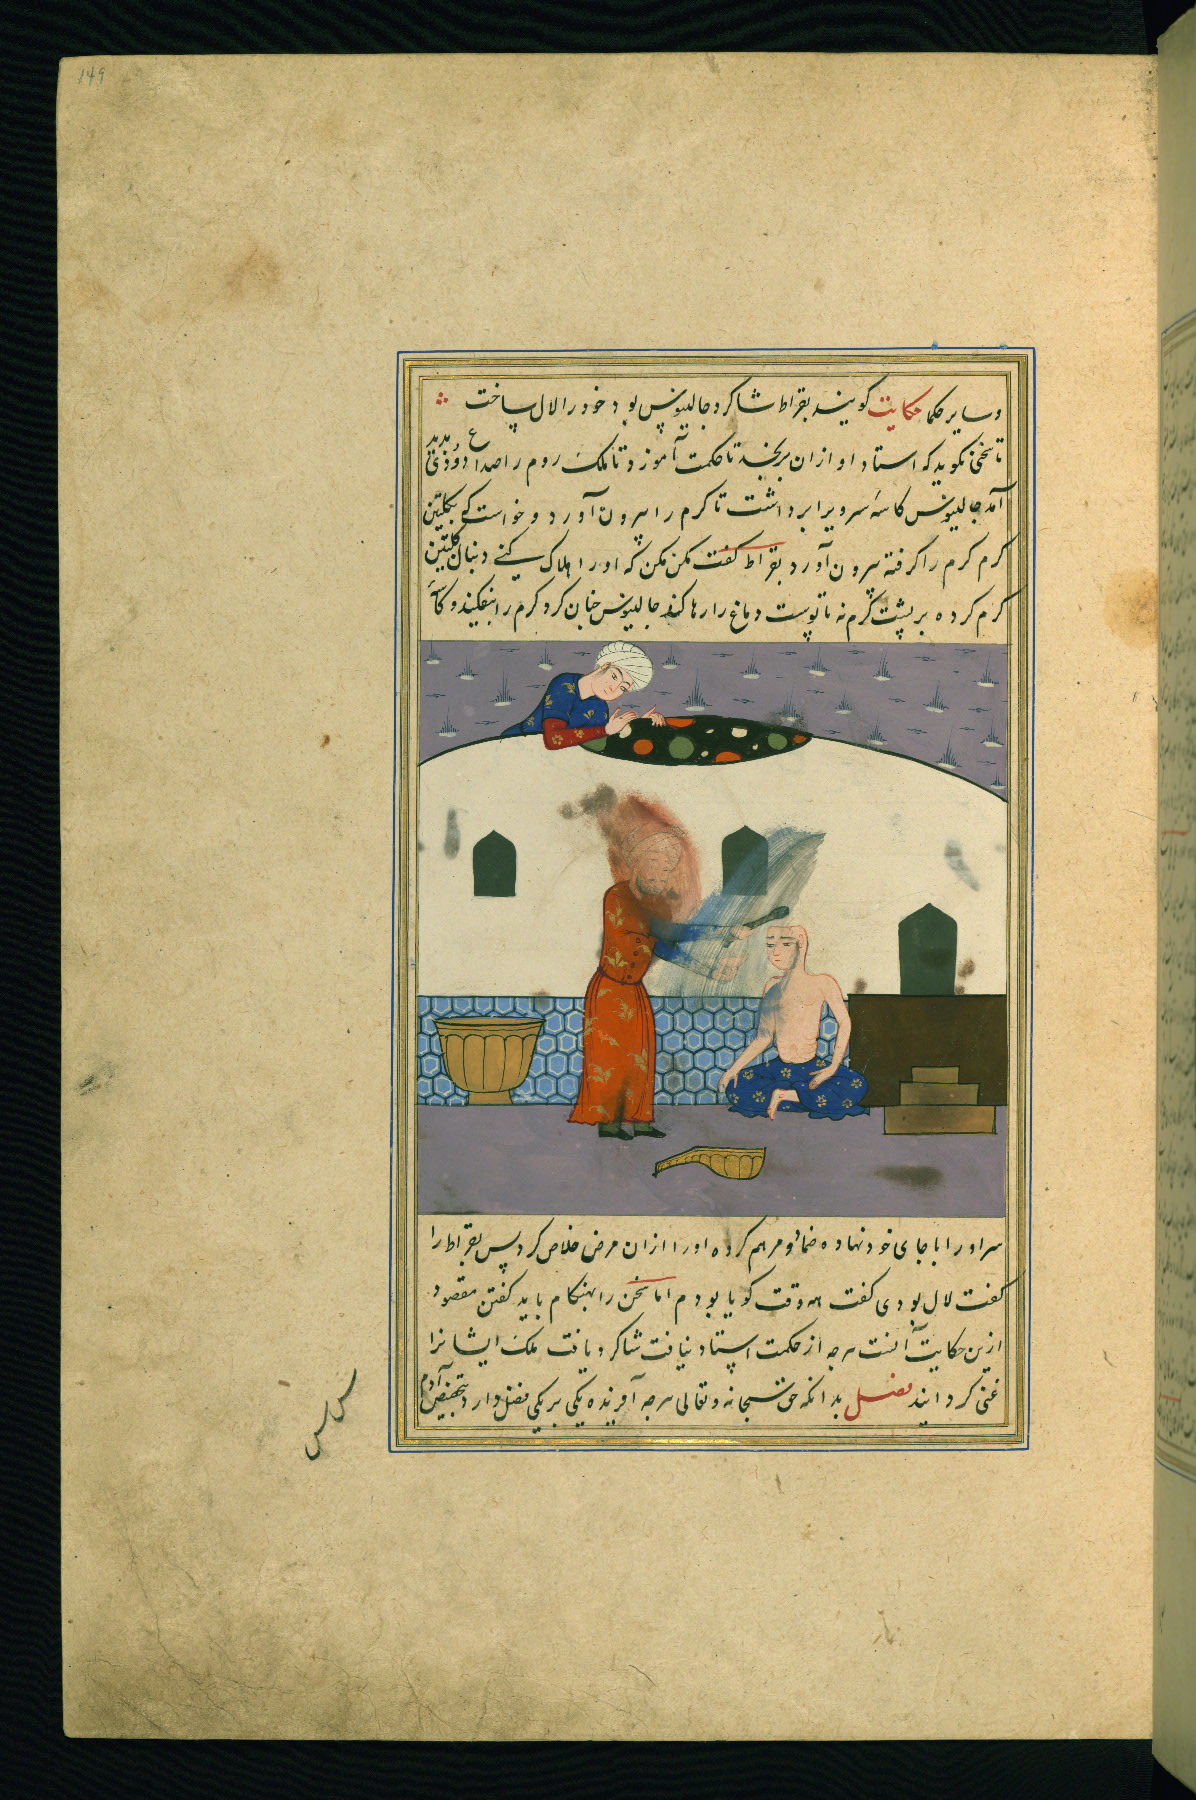 149
وسایر حکما حکایت کویند بقراط شاکرد جالینوس بود خود را لال ساخت
تا سخن نکوید که استاد او ازان برنجد تا حکمت آموزد تا ملک روم را صداع و درد پدید
آمد جالینوس کاسۀ سر ویرا برداشت تا کرم را بیرون آورد و خواست که بکلبتین
کرم کرم را کرفته بیرون آورد بقراط کفت مکن مکن که او را هلاک کنی دنبال کلبتین
کرم کرده بر پشت کرم نه تا پوست دماغ را رها کند جالینوس چنان کرد کرم را بیفکند و کاسۀ
سر او را باجای خود نهاده ضماد و مرهم کرده او را ازان مرض خلاص کرد پس بقراط را
کفت لال بودی کفت همه وقت کویا بودم اما سخن را بهنکام باید کفتن مقصود
ازین حکایت آنست هرچه از حکمت استاد نیافت شاکرد یافت ملک ایشانرا
غنی کردانید فصل بدانکه حق سبحانه و تعالی هرچه آفریده یکی بر یکی فضل دارد